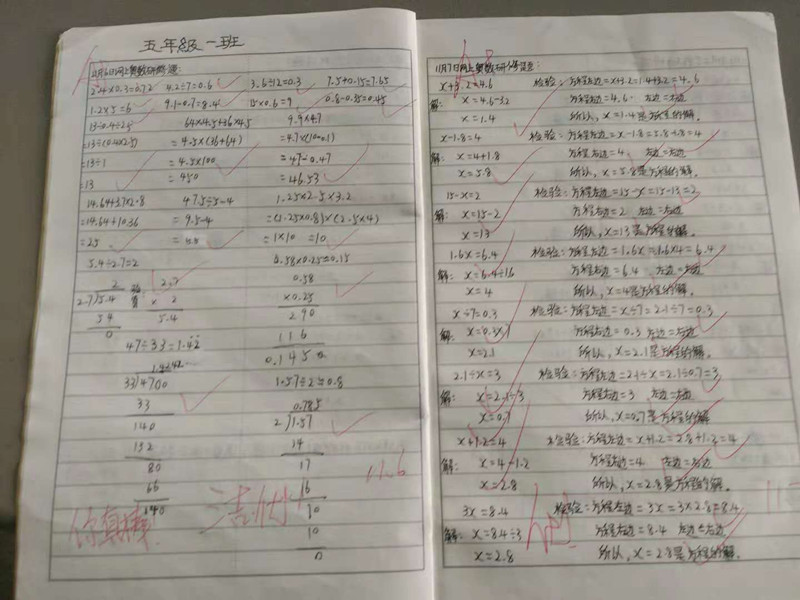 五年级一班
2.4×0.3=0.72 4.2÷7=0.6 3.6÷12=0.3 7.5+0.15=7.65
1.2×5=6 9.1-0.7=8.4 15×0.6=9
13÷0.4÷2.5 64×4.5+36×4.5 9.9×4.7
=13÷(0.4×2.5) =4.5×(36+64) =4.7×(10-0.1)
=13÷1 =4.5×100 =47-0.47
=13 =450 =46.53
14.64+3.7×2.8 47.5÷5-4 1.25×2.5×3.2
=14.64+10.36 =9.5-4 =(1.25×0.8)×(2.5×4)
=25 =5.5 =1×10 =10
5.4÷2.7=2 0.58×0.25≈0.15
2 验算 2.7 0.58
2.7)5.4 × 2 ×0.25
5 4 5.4 2 9 0
0 1 1 6
47÷33=1.42 0.1 4 5 0
33)4700 1.57÷2≈0.8
33 0.785
140 2)1.57
132 14
80 17
66 16
140 10
10
0
你真棒! 洁 优+ 11.6
x+3.2=4.6 检验:方程左边=x+3.2=1.4+3.2=4.6
解: x=4.6-3.2 方程右边=4.6 左边=右边
x=1.4 所以,x=1.4是方程的解。
x-1.8=4 检验:方程左边=x-1.8=5.8-1.8=4
解: x=4+1.8 方程右边=4 左边=右边
x=5.8 所以,x=5.8是方程的解。
15-x=2 检验:方程左边=15-x=15-13=2
解: x=15-2 方程右边=2 左边=右边
x=13 所以,x=13是方程的解。
1.6x=6.4 检验:方程左边=1.6x=1.6×4=6.4
解: x=6.4÷1.6 方程右边=6.4 左边=右边
x=4 所以,x=4是方程的解。
x÷7=0.3 检验:方程左边=x÷7=2.1÷7=0.3
解: x=0.3×7 方程右边=0.3 左边=右边
x=2.1 所以,x=2.1是方程的解。
2.1÷x=3 检验:方程左边=2.1÷x=2.1÷0.7=3
解: x=2.1÷3 方程右边=3 左边=右边
x=0.7 所以,x=0.7是方程的解。
x+1.2=4 检验:方程左边=x+1.2=2.8+1.2=4
解: x=4-1.2 方程右边=4 左边=右边
x=2.8 所以,x=2.8是方程的解。
3x=8.4 检验:方程左边=3x=3×2.8=8.4
解: x=8.4÷3 方程右边=8.4 左边=右边
x=2.8 所以,x=2.8是方程的解。